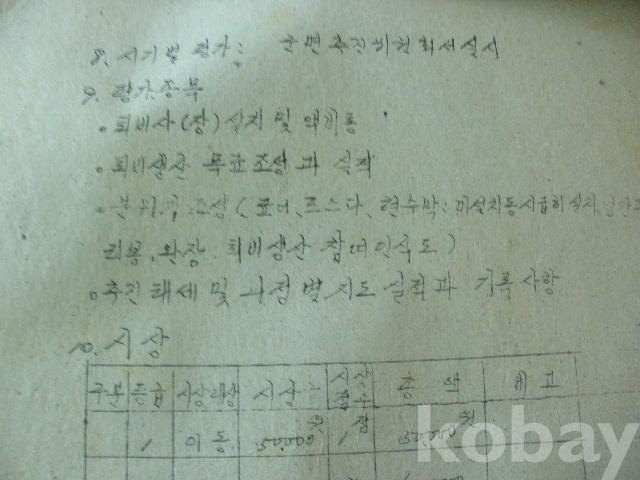 8. 시기별 평가: 군면추진위원회서 실시
9. 평가종목
퇴비사(장)설치 및 액비통
퇴비생산 목표조성과 실적
분위기 조성(표어, 포스타, 현수막: 미설치동시급히설치,
리용, 완장. 퇴비생산 참여인식도)
추진태세 및 과정별 지도 실적과 기록사항
10. 시상
구분 등급 시상대상 시상 시상점수 금액 비고
1 이동 50,000원 1점 50,000원
kobay